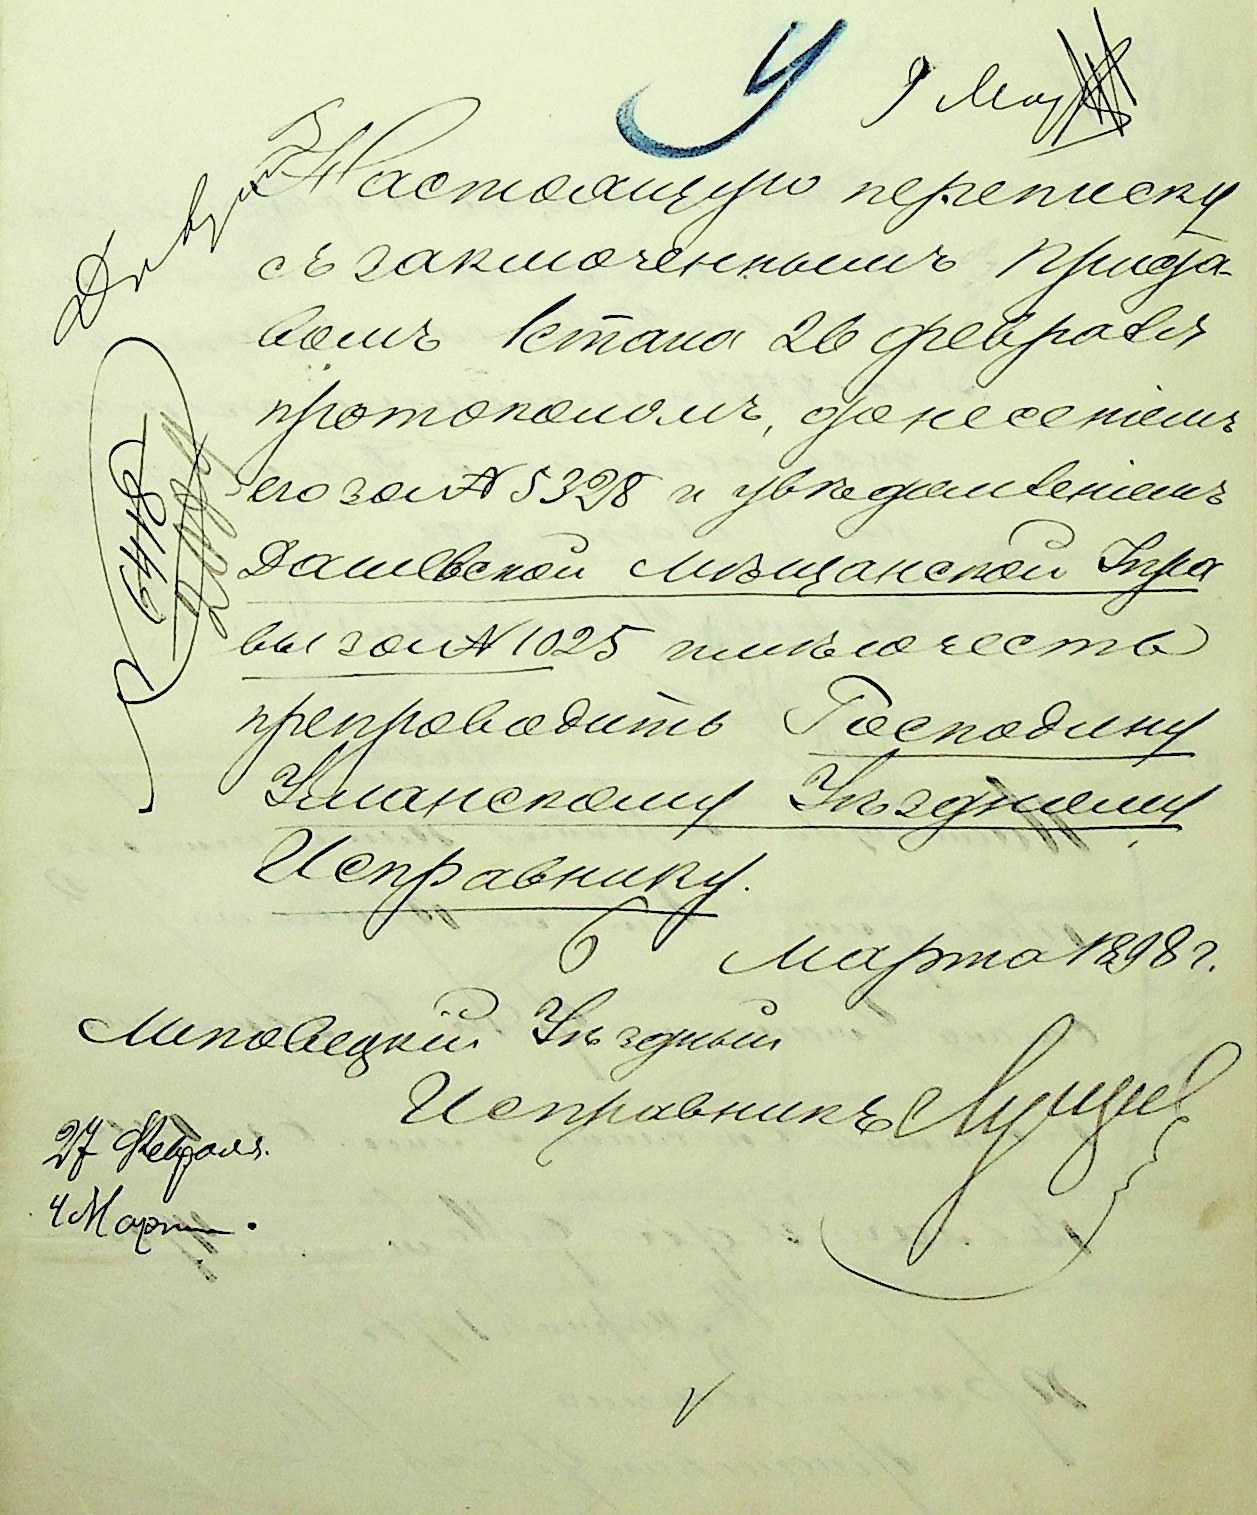 У
9 Мар
Настоящую переписку
съ заключеннымъ Приста-
вомъ 1 стана 26 февраля
протоколомъ, донесеніемъ
его за № 5328 и увѣдомленіемъ
Дашевской мѣщанской Упра
вы за № 1025 имѣю честь
препроводить Господину
Уманскому Уѣздному
Исправнику.
6 Марта 1898 г.
Липовецкій Уѣздный
Исправникъ
27 Февраля.
4 Марта.
6418